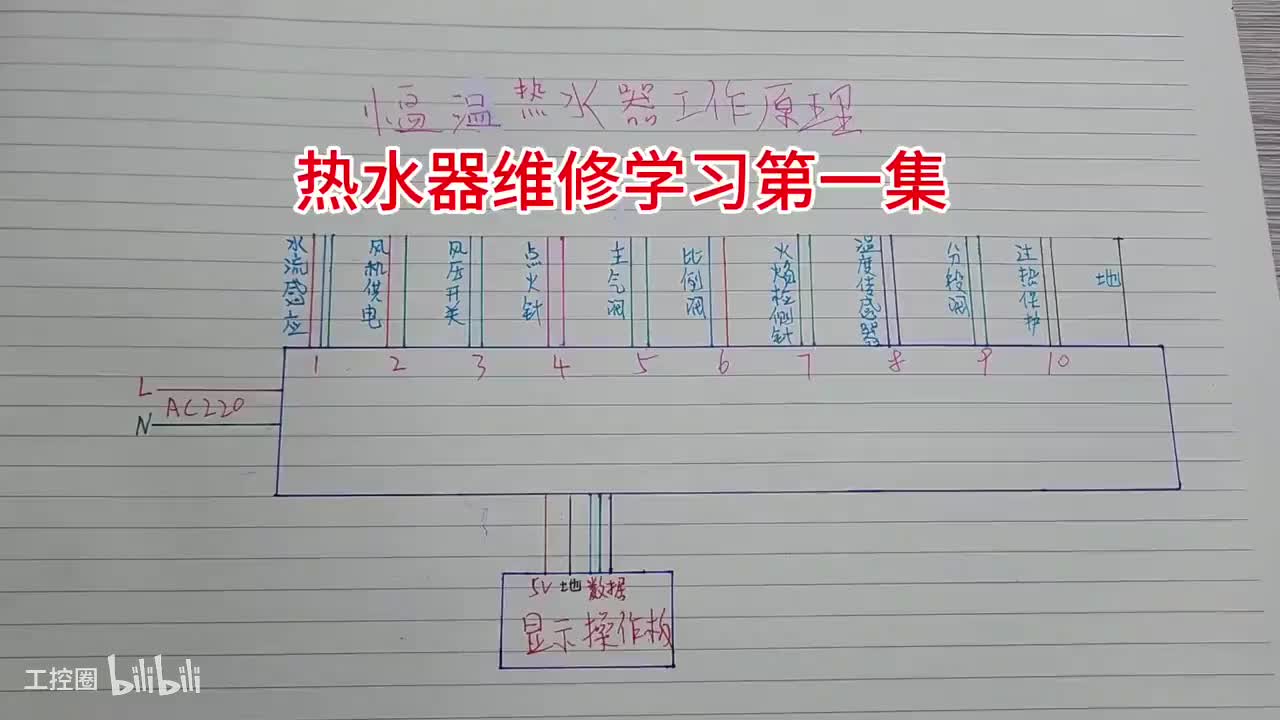 恒温热水器工作原理
热水器维修学习第一集
水流感应
风机供电
风压开关
点火针
主气阀
比例阀
火焰检侧针
温度传感器
分段阀
过热保护
地
1 2 3 4 5 6 7 8 9 10
L
AC220
N
5V 地 数据
显示操作板
工控圈 bilibili